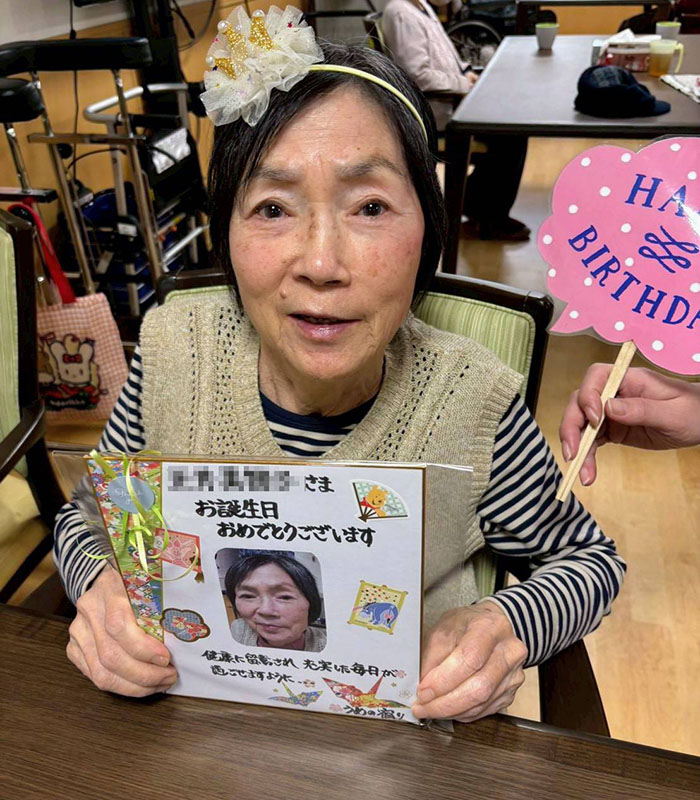 さま
お誕生日
おめでとうございます
健康に留意され 充実した毎日が
過ごせますように...
うめの宿り
HA
BIRTHDA